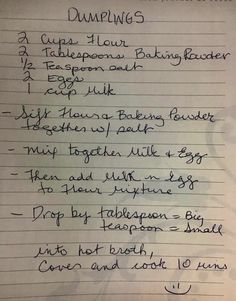 DUMPLINGS
2 Cups Flour
2 Tablespoons Baking Powder
1/2 Teaspoon salt
2 Eggs
1 cup Milk
- Sift Flour & Baking Powder
together w/ salt
- Mix together Milk & Egg
- Then add Milk n Egg
to Flour mixture
- Drop by tablespoon = Big
teaspoon = Small
into hot broth,
Cover and cook 10 mins